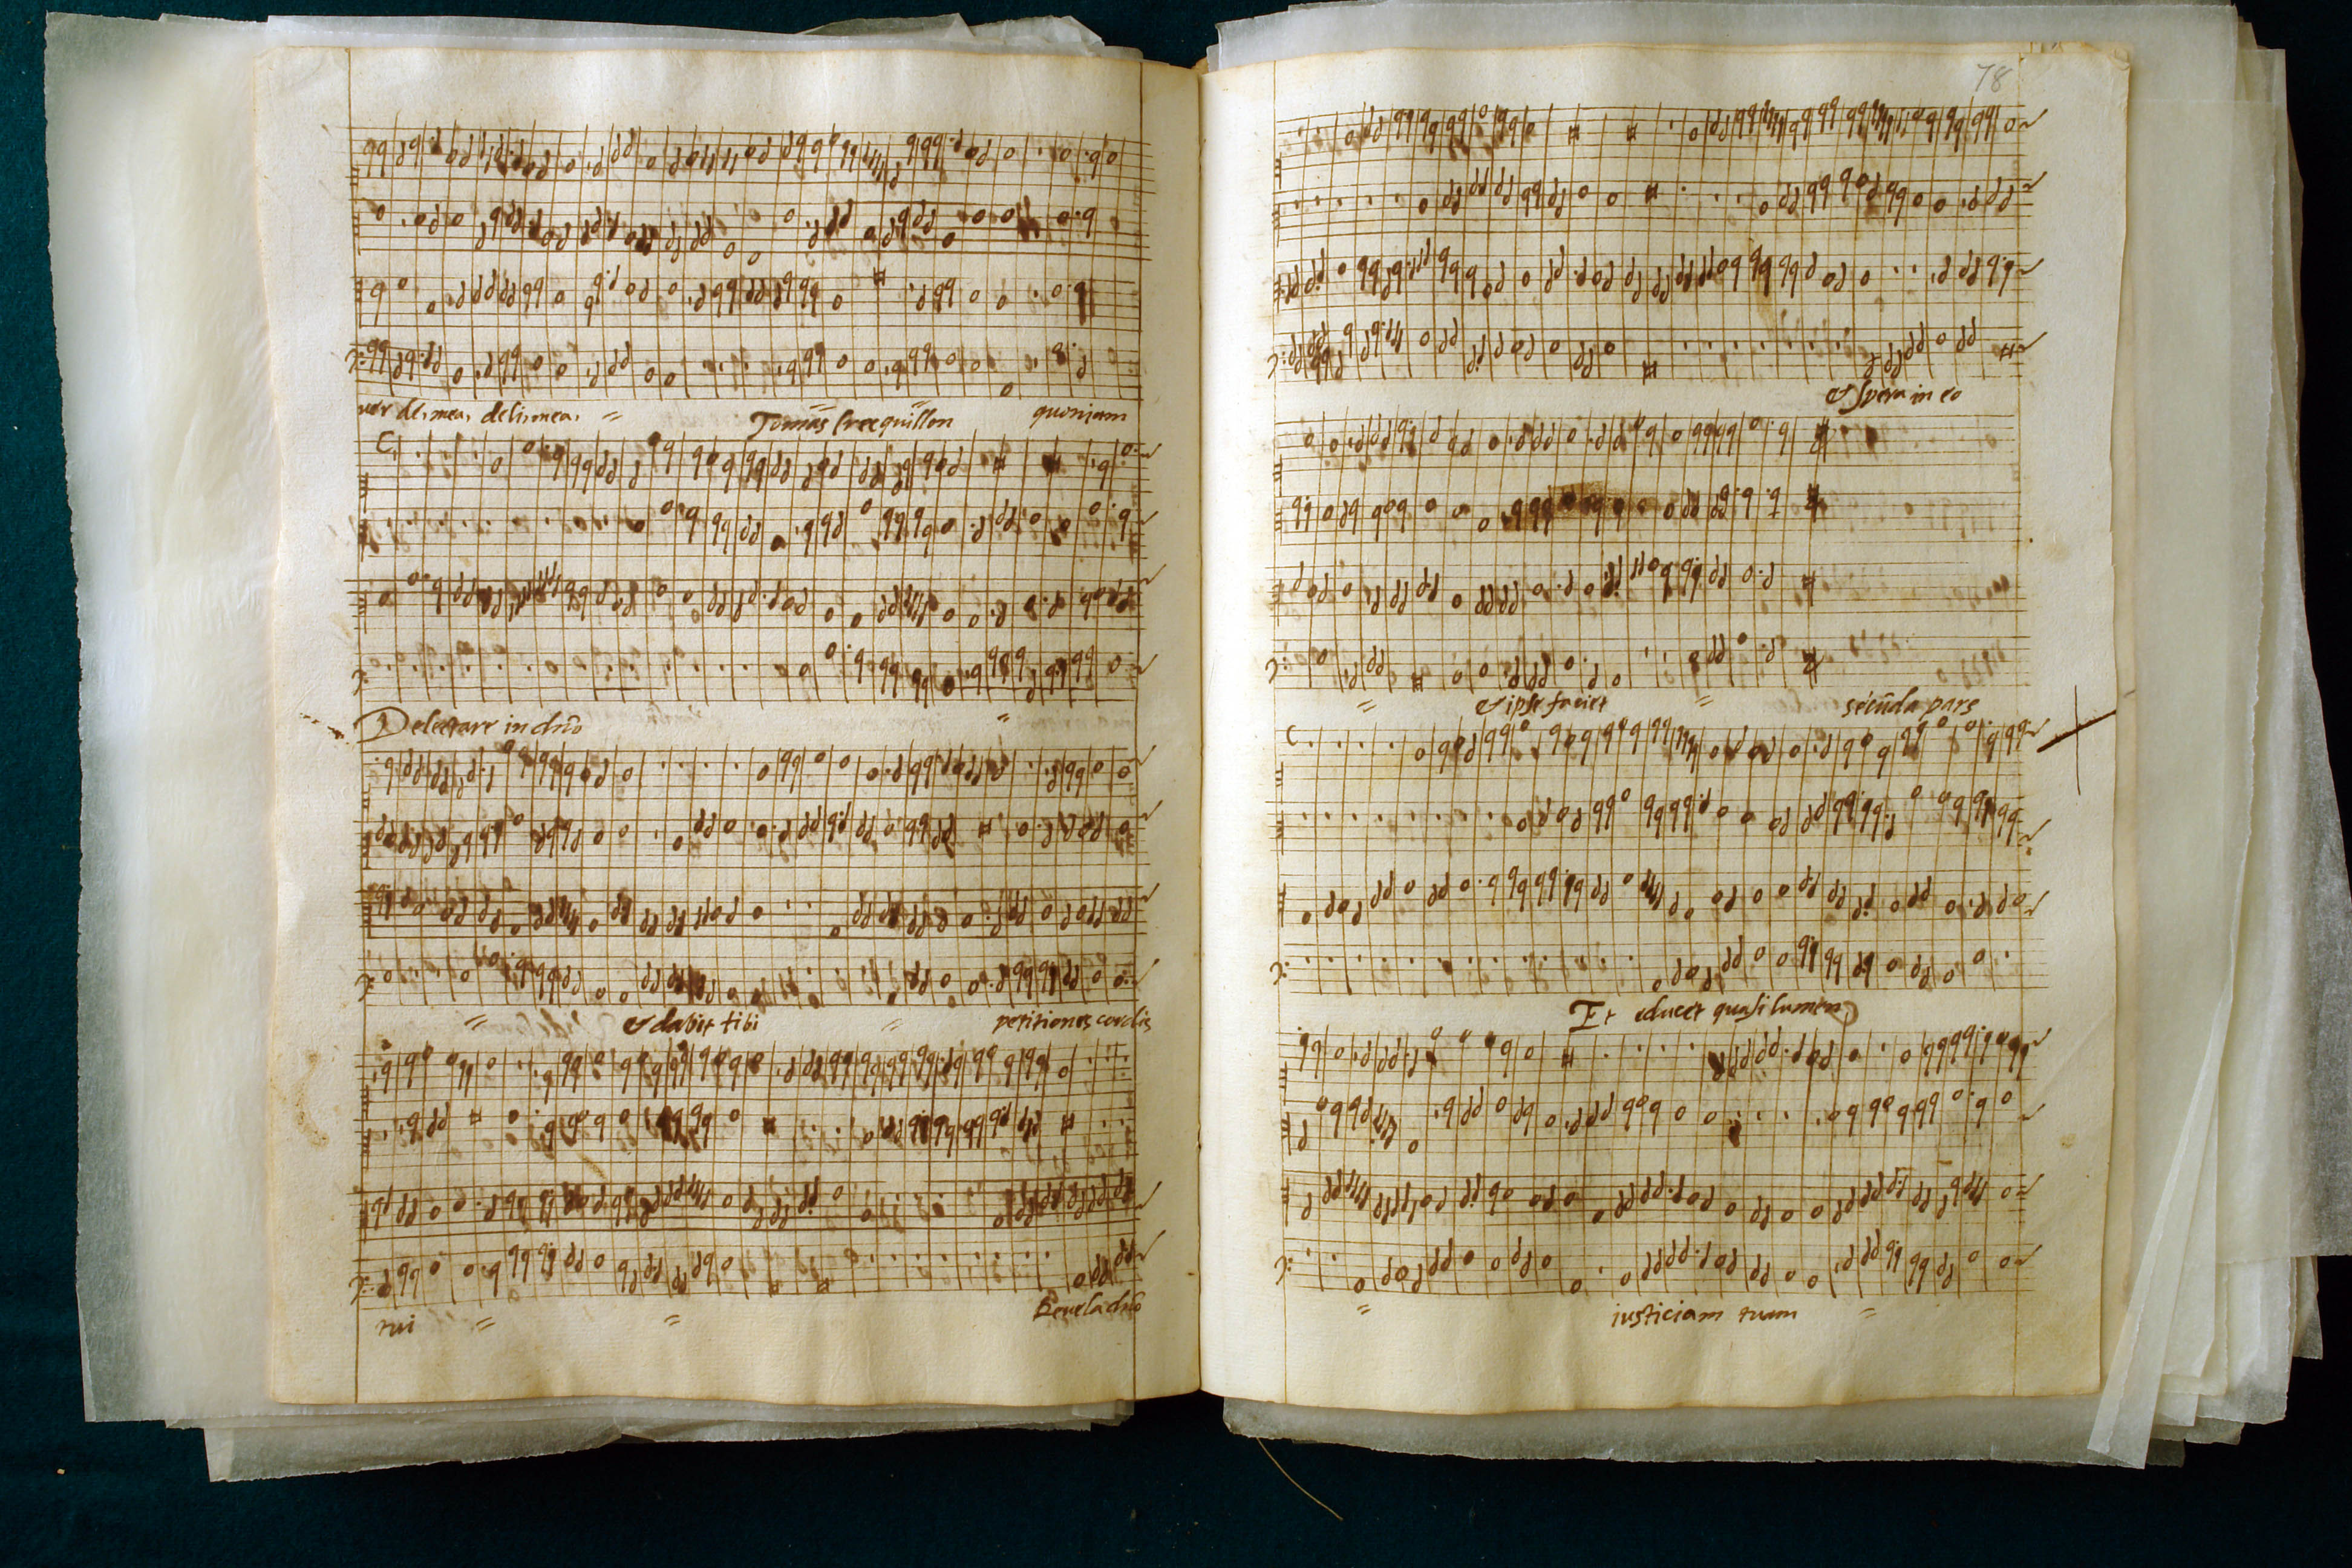 delimea,
Tomas Crecquillon
quoniam
Delectare in dño
& dabit tibi
petitiones cordis
tui
Revela dño
78
& spera in eo
& ipse faciet
secũda pars
Et educet quasi lumen
iusticiam tuam